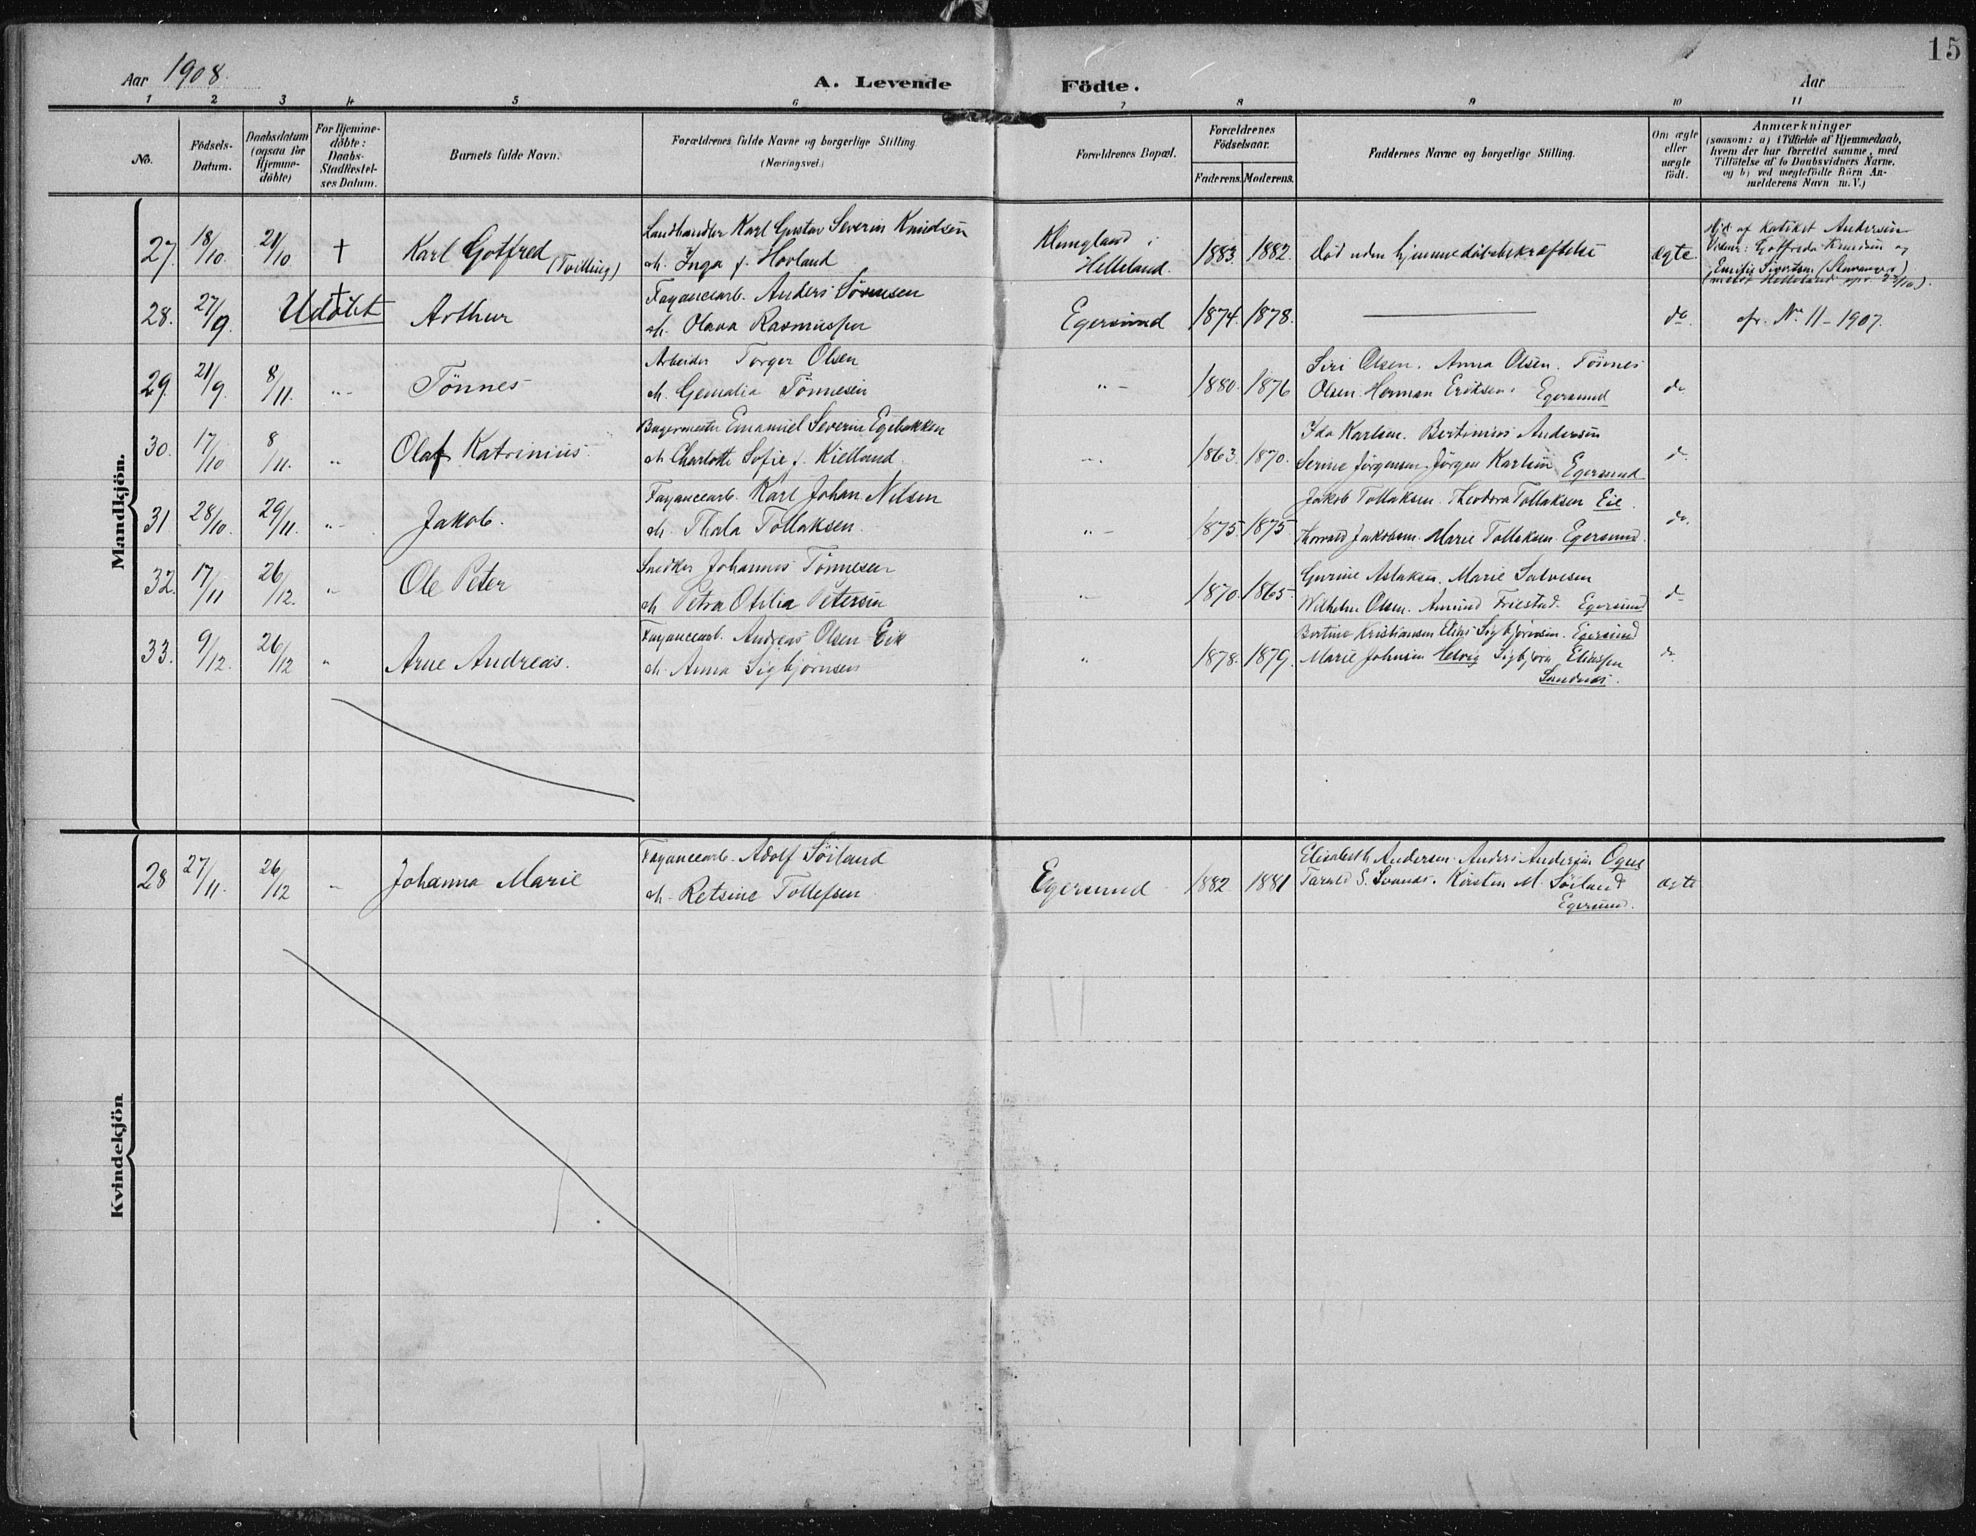 15
Aar 1908.
A. Levende Födte.
Aar
1 2 3 4 5 6 7 8 9 10 11
No.
Födsels-
Datum.
Daabsdatum
(ogsaa for
Hjemme-
döbte)
For Hjemme-
döbte:
Daabs-
Stadfæstel-
ses Datum.
Barnets fulde Navn.
Forældrenes fulde Navne og borgerlige Stilling
(Næringsvei.)
Forældrenes Bopæl.
Forældrenes
Födselsaar.
Faderens. Moderens.
Faddernes Navne og borgerlige Stilling.
Om ægte
eller
uægte
födt.
Anmærkninger
(saasom: a) i Tilfælde af Hjemmedaab,
hvem der har forrettet samme, med
Tilföielse af to Daabsvidners Navne.
og b) ved uegtefödte Börn An-
melderens Navn m. V.)
Mandkjön.
27. 18/10. 21/10 † Karl Gotfred (Tvilling)
Landhandler Karl Gustav Severin Knudsen
o. h. Inga f. Hovland
Klungland i
Helleland.
1883. 1882. Død uden hjemmedåbsbekræftelse ægte.
Hjd. af Katiket Andersen
Vidner: Gotfreda Knudsen og
Sivertsen (Stavanger)
28. 27/9. Udøbt † Arthur
Fayancearb. Anders Sørensen
o. h. Olava Rasmussen
Egersund 1874. 1878. do. cfr. No 11 - 1907.
29. 21/9. 8/11. " - Tønnes
Arbeider Torger Olsen
o. h. Gemalia Tønnesen
" - 1880. 1876
Siri Olsen. Anna Olsen. Tönnes
Olsen. Herman Eriksen. Egersund do.
30. 17/10 8/11. " Olaf Katrinius.
Bagermester Emanuel Severin Egebakken
o. h. Charlotte Sofie f. Kielland.
" - 1863. 1870.
Ida Karlsen. Bertinius Andersen
Serine Jørgensen. Jørgen Karlsen Egersund do.
31 28/10. 29/11. " - Jakob.
Fayancearb. Karl Johan Nilsen
o. h. Thala Tollaksen.
" - 1875. 1875.
Jakob Tollaksen. Theodora Tollaksen Eie.
Thorvald Jakobsen. Marie Tollaksen. Egersund. do.
32. 17/11 26/12. " Ole Peter
Snedker Johannes Tønnesen
o. h. Petra Otilia Petersen
" - 1870. 1865.
Gurine Aslaksen. Marie Salvesen
Wilhelm Olsen. Amund Friestad. Egersund do.
33. 9/12. 26/12 " Arne Andreas.
Fayancearb. Andreas Olsen Eik
o. h. Anna Sigbjørnsen
" 1878. 1879.
Bertine Kristiansen Elias Sigbjørnsen. Egersund
Marie Johnsen Helvig Sigbjørn Eliassen
Sandnes. do.
Kvindekjön
28 27/11. 26/12 " Johanna Marie
Fayancearb. Adolf Søiland
o. h. Retsine Tollefsen
Egersund 1882 1881
Elisabeth Andersen. Anders Andersen Ogna
Tarald S. Svanes. Kirsten M. Søiland
Egersund. ægte